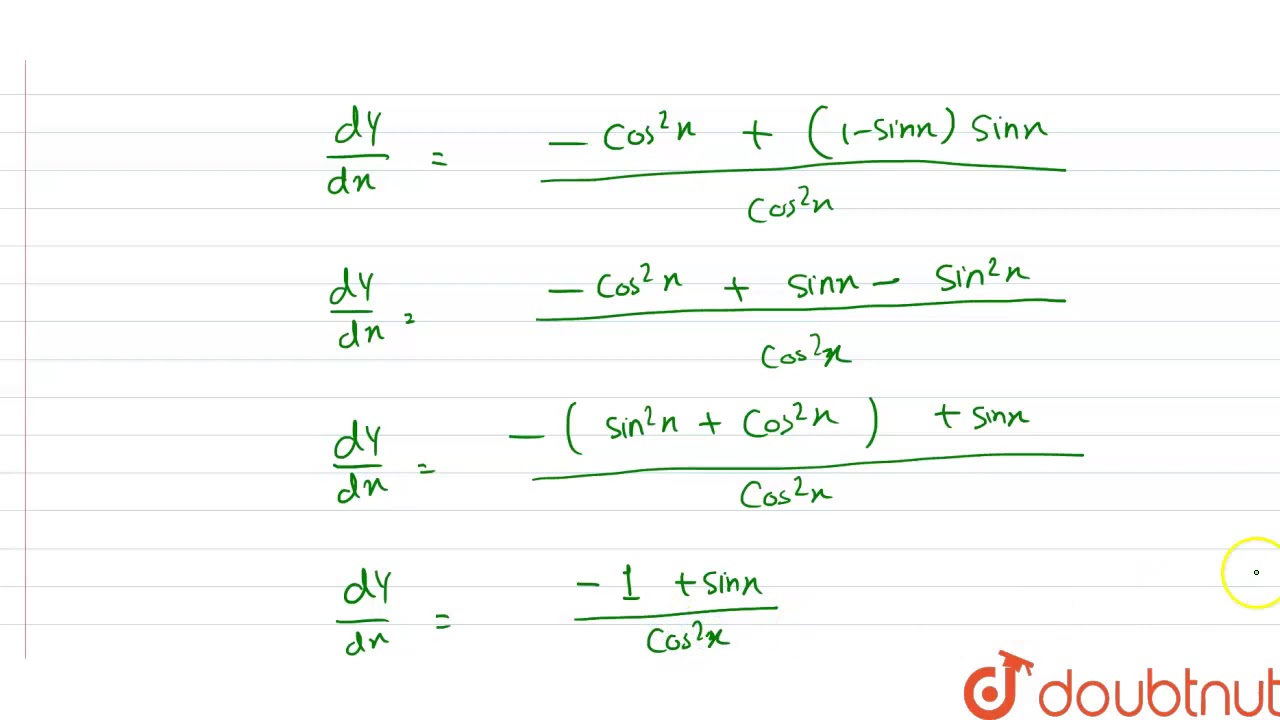 dy/dx = (- Cos²x + (1-Sinx) Sinx) / Cos²x
dy/dx = (- Cos²x + Sinx - Sin²x) / Cos²x
dy/dx = (- (Sin²x + Cos²x) + Sinx) / Cos²x
dy/dx = (- 1 + Sinx) / Cos²x
doubtnut